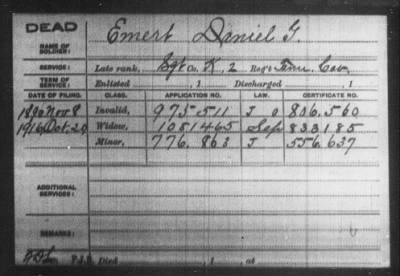 DEAD
NAME OF SOLDIER: Emert Daniel G.
SERVICE: Late rank, Sgt Co. K, 2 Reg't Tenn. Cav.
TERM OF SERVICE: Enlisted , 1 Discharged , 1
DATE OF FILING. CLASS. APPLICATION NO. LAW. CERTIFICATE NO.
1890 Nov 8 Invalid, 975.511 J 806.560
1916 Oct 20 Widow, 1081465 Sep 833185
Minor, 776.863 J 556.637
ADDITIONAL SERVICES:
REMARKS:
P.I.D. Died , 1 , at